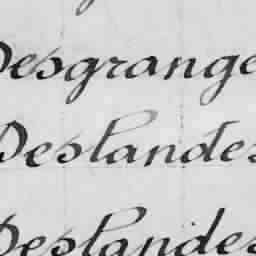 Desgrange
Deslandes
Deslandes